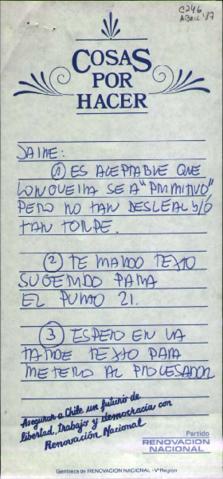 C246
ABRIL '87
COSAS
POR
HACER
JAIME:
① ES ACEPTABLE QUE
LONGUEIRA SEA "PRIMITIVO"
PERO NO TAN DESLEAL y/o
TAN TORPE.
② TE MANDO TEXTO
SUGERIDO PARA
EL PUNTO 21.
③ ESPERO EN LA
TARDE TEXTO PARA
METERLO AL PROCESADOR
Aseguran a Chile un futuro de
libertad, trabajo y democracia con
Renovación Nacional
Partido
RENOVACION
NACIONAL
Gentileza de RENOVACION NACIONAL - Vª Región